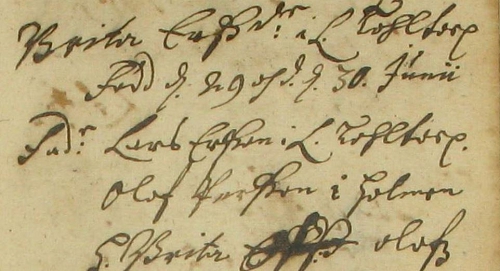 Brita Erßdr i L. Kohltorp
Född d. 29 ofd. d. 30. Junii
Fad:r Lars Erßon i L. Kohltorp.
Olof Perßon i Holmen
H. Brita Olofß